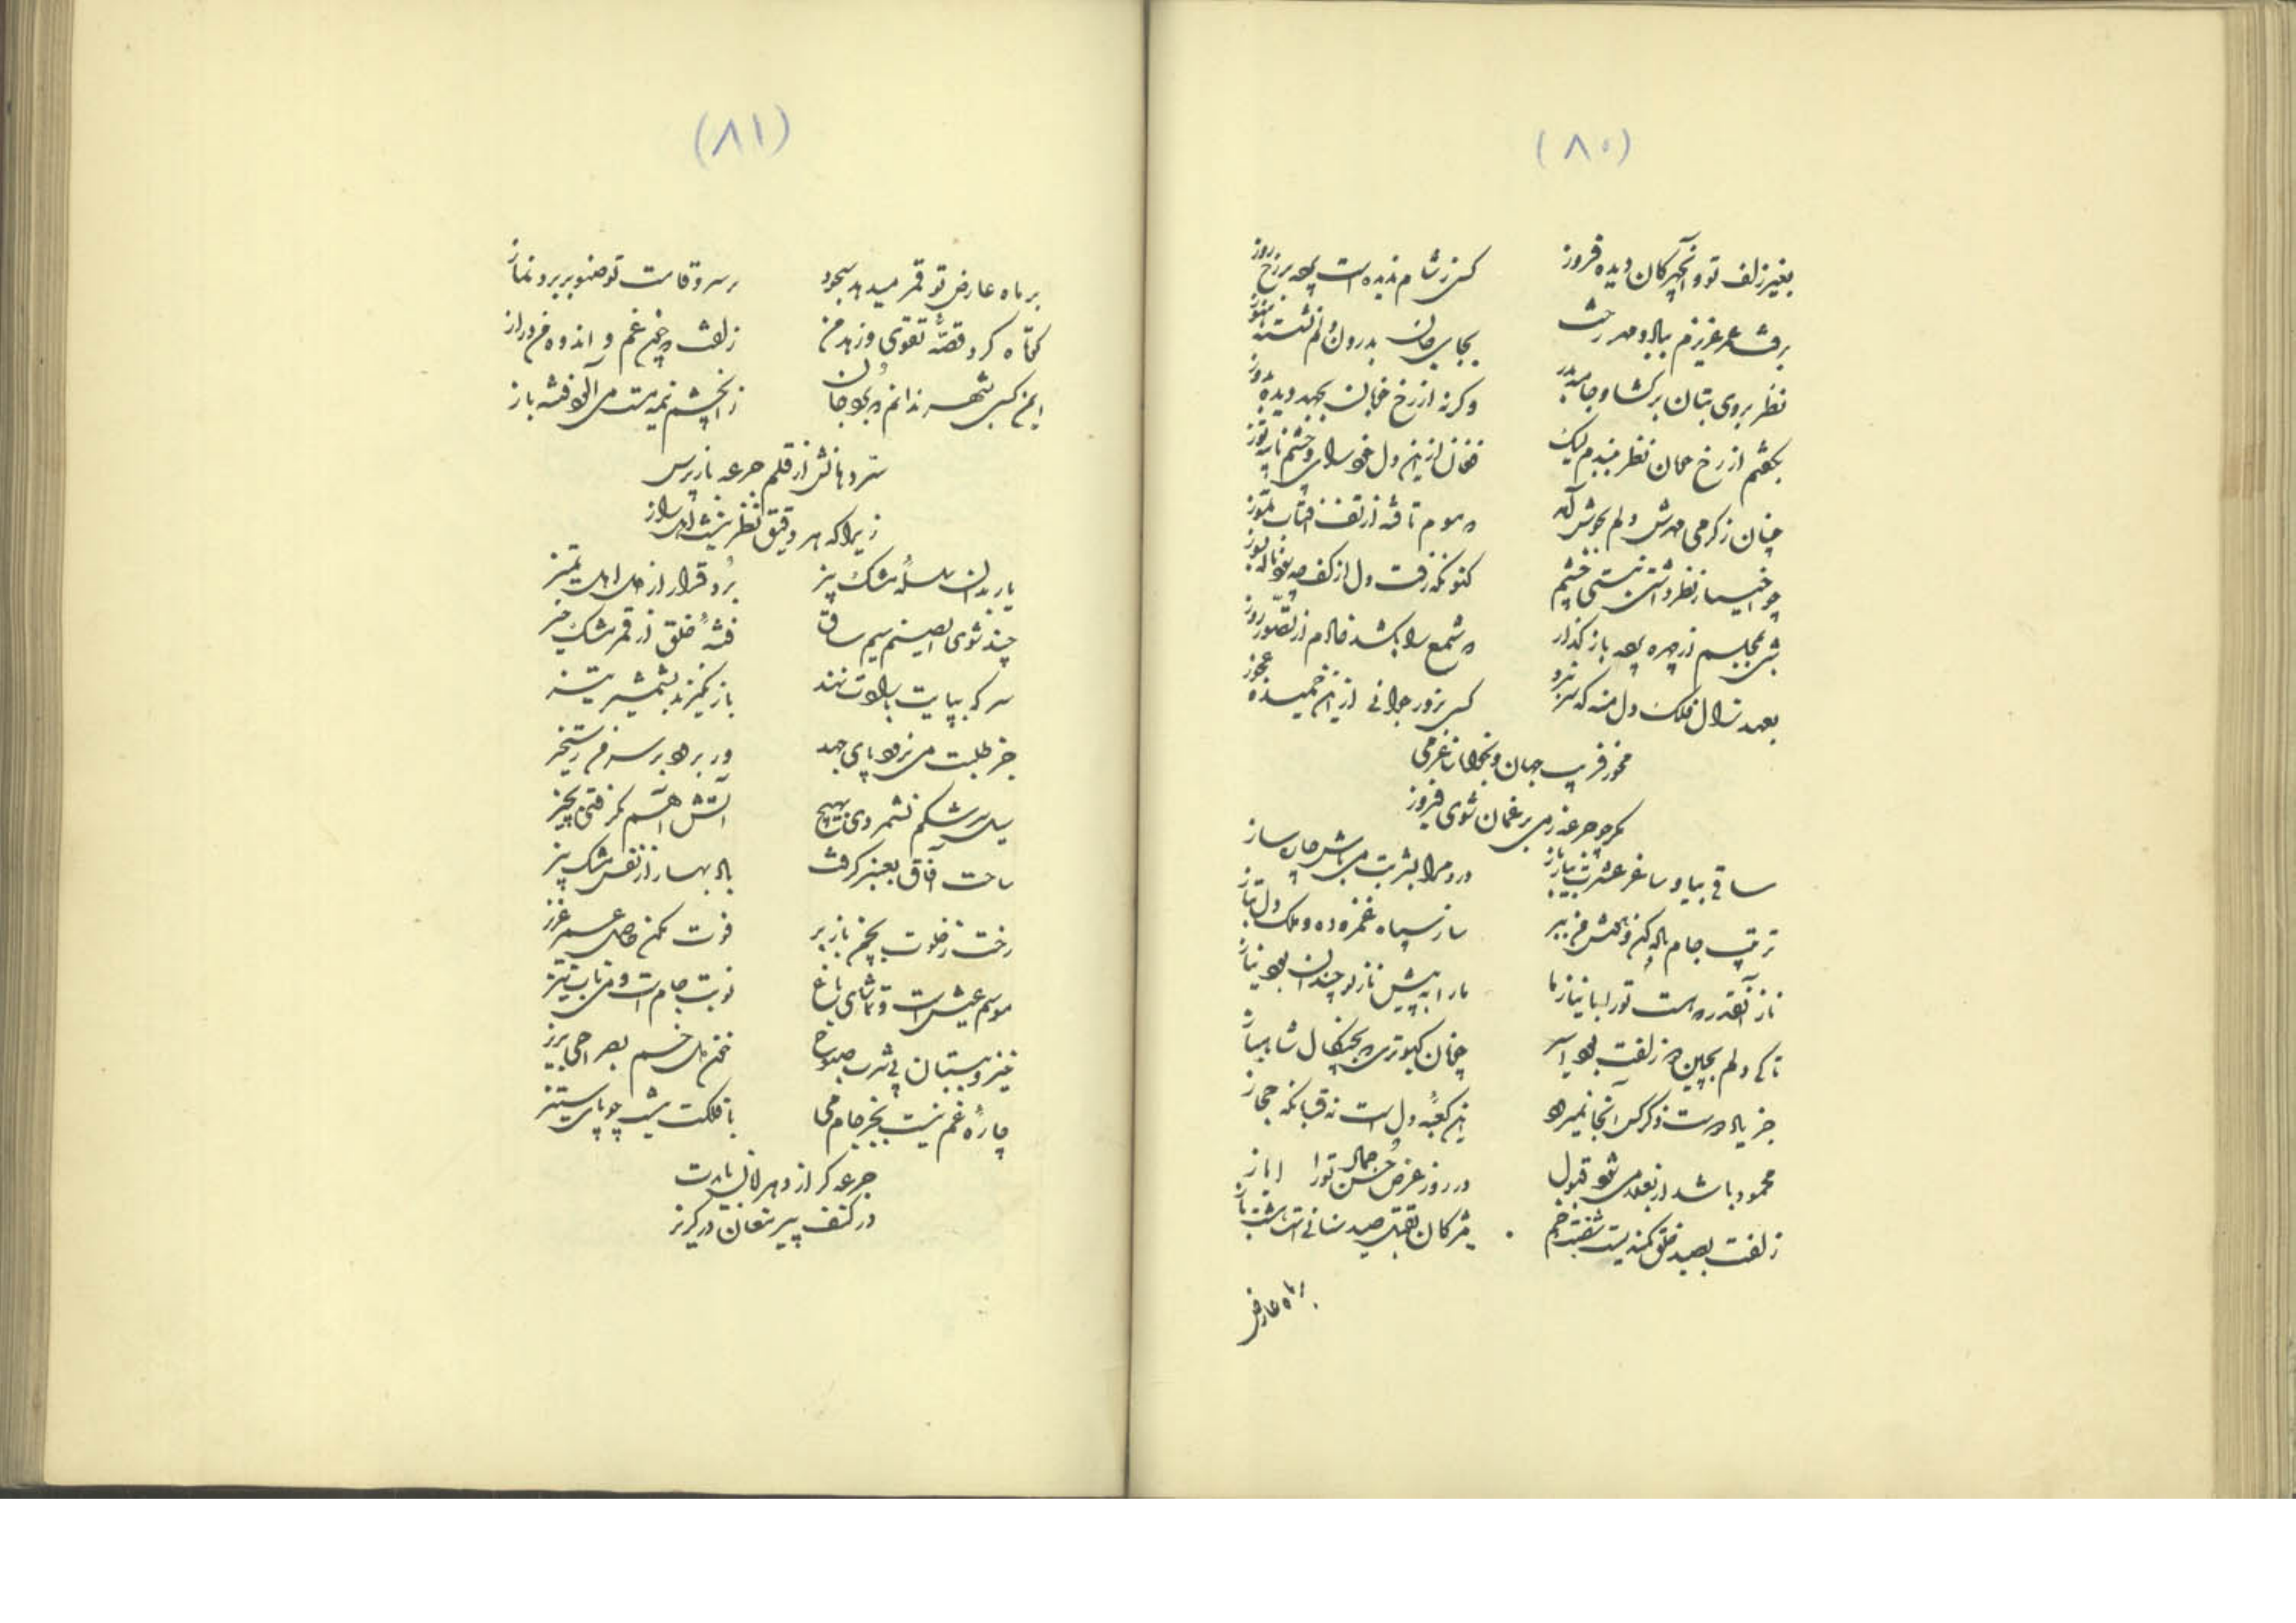 (۸۰)
بغیر زلف تو و آنچهرکان دیده فروز
کس ز شام ندیده است برزخ روز
برفت عمر عزیزم بباد و مهر رخت
بجای جان بدرون دلم نشسته هنوز
نظر بروی بتان برگشا و جامه بدر
وگرنه از رخ خوبان بجهد دیده بدوز
بگفتم از رخ نظر ببندم لیک
فغان از این دل و چشم
چنان ز گرمی مهرش دلم بجوش آمد
که موم تافته از تف آفتاب تموز
چو اختیار نظر داشتی نبستی چشم
کنونکه رفت دل از کف چه سود ناله بسوز
شبی بمجلسم از چهره پرده باز گذار
که شمع را بکشد خادم از تصور روز
بعهد زال فلک دل منه که سر نبرد
کسی بزور جوانی از این خمیده عجوز
مخور فریب جهان و
مگر چو جرعه ز می بر غمان شوی فیروز
ساقی بیا و ساغر عشرت بیار باز
درد مرا بشربت می باش چاره ساز
ترتیب جام باده کن و هوش من ببر
ساز سپاه غمزه ده و ملک دل بتاز
ناز آنقدر که هست تو را با نیاز ما
ما را به پیش ناز تو چندان بود نیاز
تا کی دلم بچین دو زلفت بود اسیر
چونان کبوتری که بچنگال شاهباز
جز یاد دوست ذکر کس آنجا نمیرود
این کعبه دل است نه قبانگه حجاز
محمود باشد ار بغلامی شود قبول
در روز عرض حسن جمال تو را ایاز
زلفت بصید خلق کمندیست خم بخم
مژگان بقتل صید سنانی است
بر ماه عارض
(۸۱)
بر ماه عارض تو قمر میدهد سجود
بر سرو قامت تو صنوبر برد نماز
کوتاه کرد قصه تقوی و زهد من
زلفت چو غم و اندوه من دراز
ایمن کسی بشهر ندانم بجان
زآنچشم نیمه مست می آلود فتنه باز
سر دهانش از قلم جرعه باز پرس
زیرا که هر دقیق نظر نیست اهل راز
یار بدان سلسله مشک بیز
برد قرار از دل اهل تمیز
چند شوی ایصنم سیم ساق
فتنه خلق از قمر مشک خیز
سر که بپایت بارادت نهند
باز نگیرند بشمشیر تیز
جز طلبت می نرود پای جهد
ور برود بر سر من رستخیز
سیل سرشکم نشمردی بهیچ
آتش آهم نگرفتی بچیز
ساحت آفاق بعنبر گرفت
باد بهار از نفس مشک بیز
رخت ز خلوت بچمن باز بر
فوت مکن حاصل عمر عزیز
موسم عیش است و تماشای باغ
نوبت جام است و می ناب نیز
خیز و ببستان پی شرب صبوح
خون دل خم بصراحی بریز
چاره غم نیست بجز جام می
با فلکت نیست چو پای ستیز
جرعه گر از دهر امان بایدت
در کنف پیر مغان در گریز